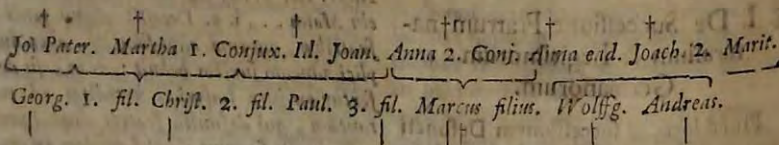 Jo. Pater. Martha 1. Conjux. Id. Joan. Anna 2. Conj. Anna ead. Joach. 2. Marit.
Georg. 1. fil. Christ. 2. fil. Paul. 3. fil. Marcus filius. Wolffg. Andreas.